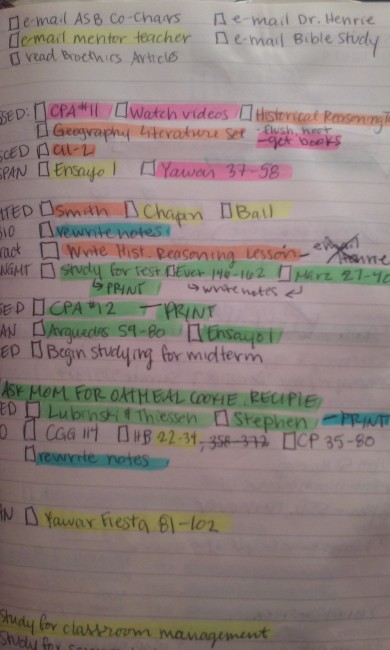 e-mail ASB Co-Chairs e-mail Dr. Henrie
e-mail mentor teacher e-mail Bible Study
read Bioethics Articles
SED: CPA #11 Watch videos Historical Reasoning
Geography Literature Set - flush, heat
- get books
SCED CH-2
SPAN Ensayo 1 Yawar 37-58
MTED Smith Chapin Ball
BIO rewrite notes
ract Write Hist. Reasoning Lesson - email Henrie
NGMT Study for test Ever 146-162 Marz 27-42
↳ PRINT ↳ write notes ↵
SED CPA #12 - PRINT
AN Arguedas 59-80 Ensayo 1
ED Begin studying for midterm
ASK MOM FOR OATMEAL COOKIE RECIPIE
ED Lubinski & Thiessen Stephen - PRINT
O CGG 114 HB 22-34, 358-372 CP 35-80
rewrite notes
AN Yawar Fiesta 81-102
Study for classroom management
Study for